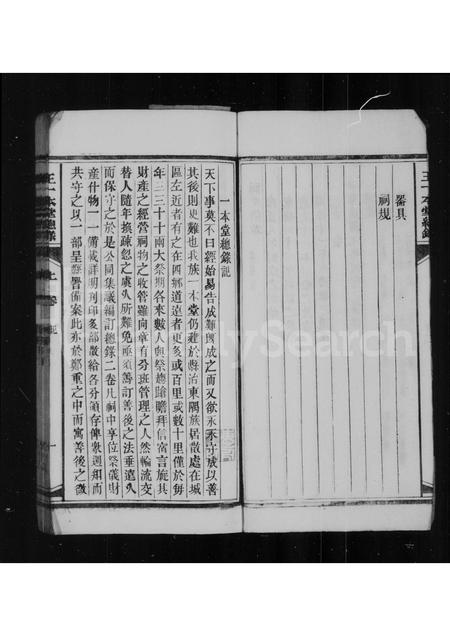 器具
祠規
一本堂總錄記
天下事莫不曰經始易告成難既成之而又欲永不守成以善
其後則更難也我族一本堂仍建於縣治東隅族居散處在城
區左近者有之在四鄉道遠者更多或百里或數十里僅於每
年三三十十兩大祭期各來數人與祭
財產之經營祠物之收管雖向章有分班管理之人然輪流交
替人隨年換疎忽之虞久所難免亟須籌訂善後之法垂遠久
而保守之於是公同集議編訂總錄二卷凡祠中享位祭儀財
產什物一一備載詳明刊印多部散給各分領存俾衆週知而
共守之以一部呈縣署備案此亦於鄭重之中而寓善後之微
王一本堂總錄
上卷
記
一
王一本堂總錄
MySearch